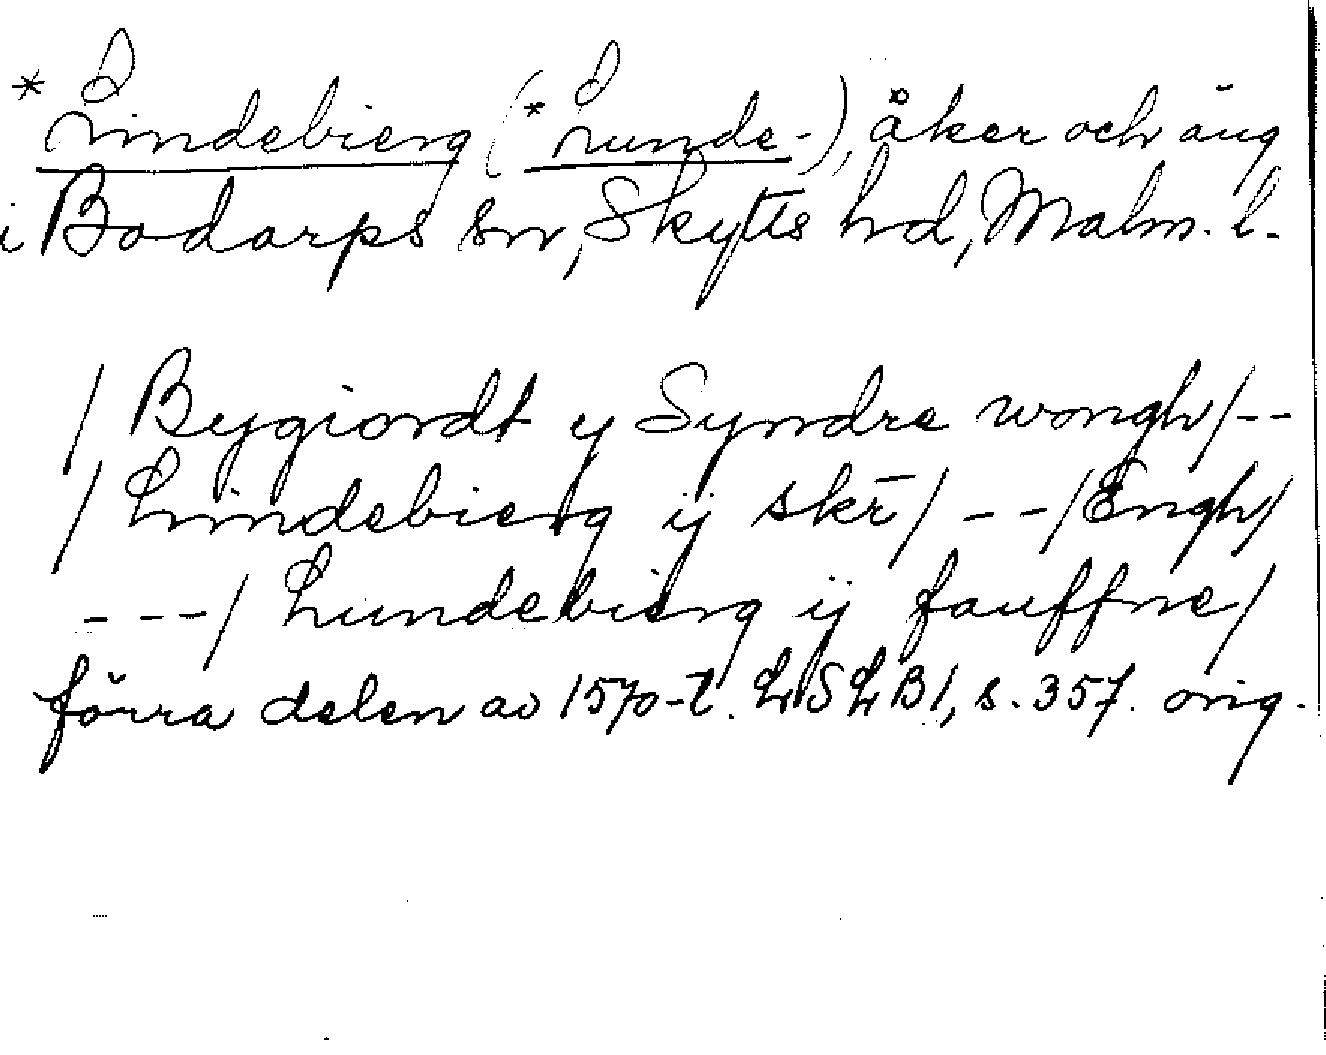 * Lindebierg (* Lunde-), åker och äng
i Bodarps sn, Skytts hd, Malm. l.
/ Bygiordt y Syndre wongh/--
/ Lindebierg ij skr̄/ --/Engh/
---/ Lundebierg ij fauffne/
förra delen av 1570-t. LSLB1, s. 357. orig.